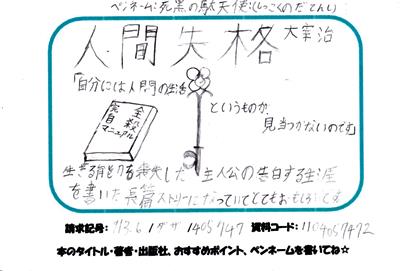 ペンネーム:死黒の駄天使(しっこくのだてんし)
人間失格 太宰治
「自分には人間の生活
というものが、
見当つかないのです」
完全自殺マニュアル
生きる自信を喪失した主人公の告白する生涯
を書いた長篇ストーリーになっていてとてもおもしろいです
請求記号: 913.6 / ダザ 1405747 資料コード: 1104057472
本のタイトル・著者・出版社、おすすめポイント、ペンネームを書いてね☆